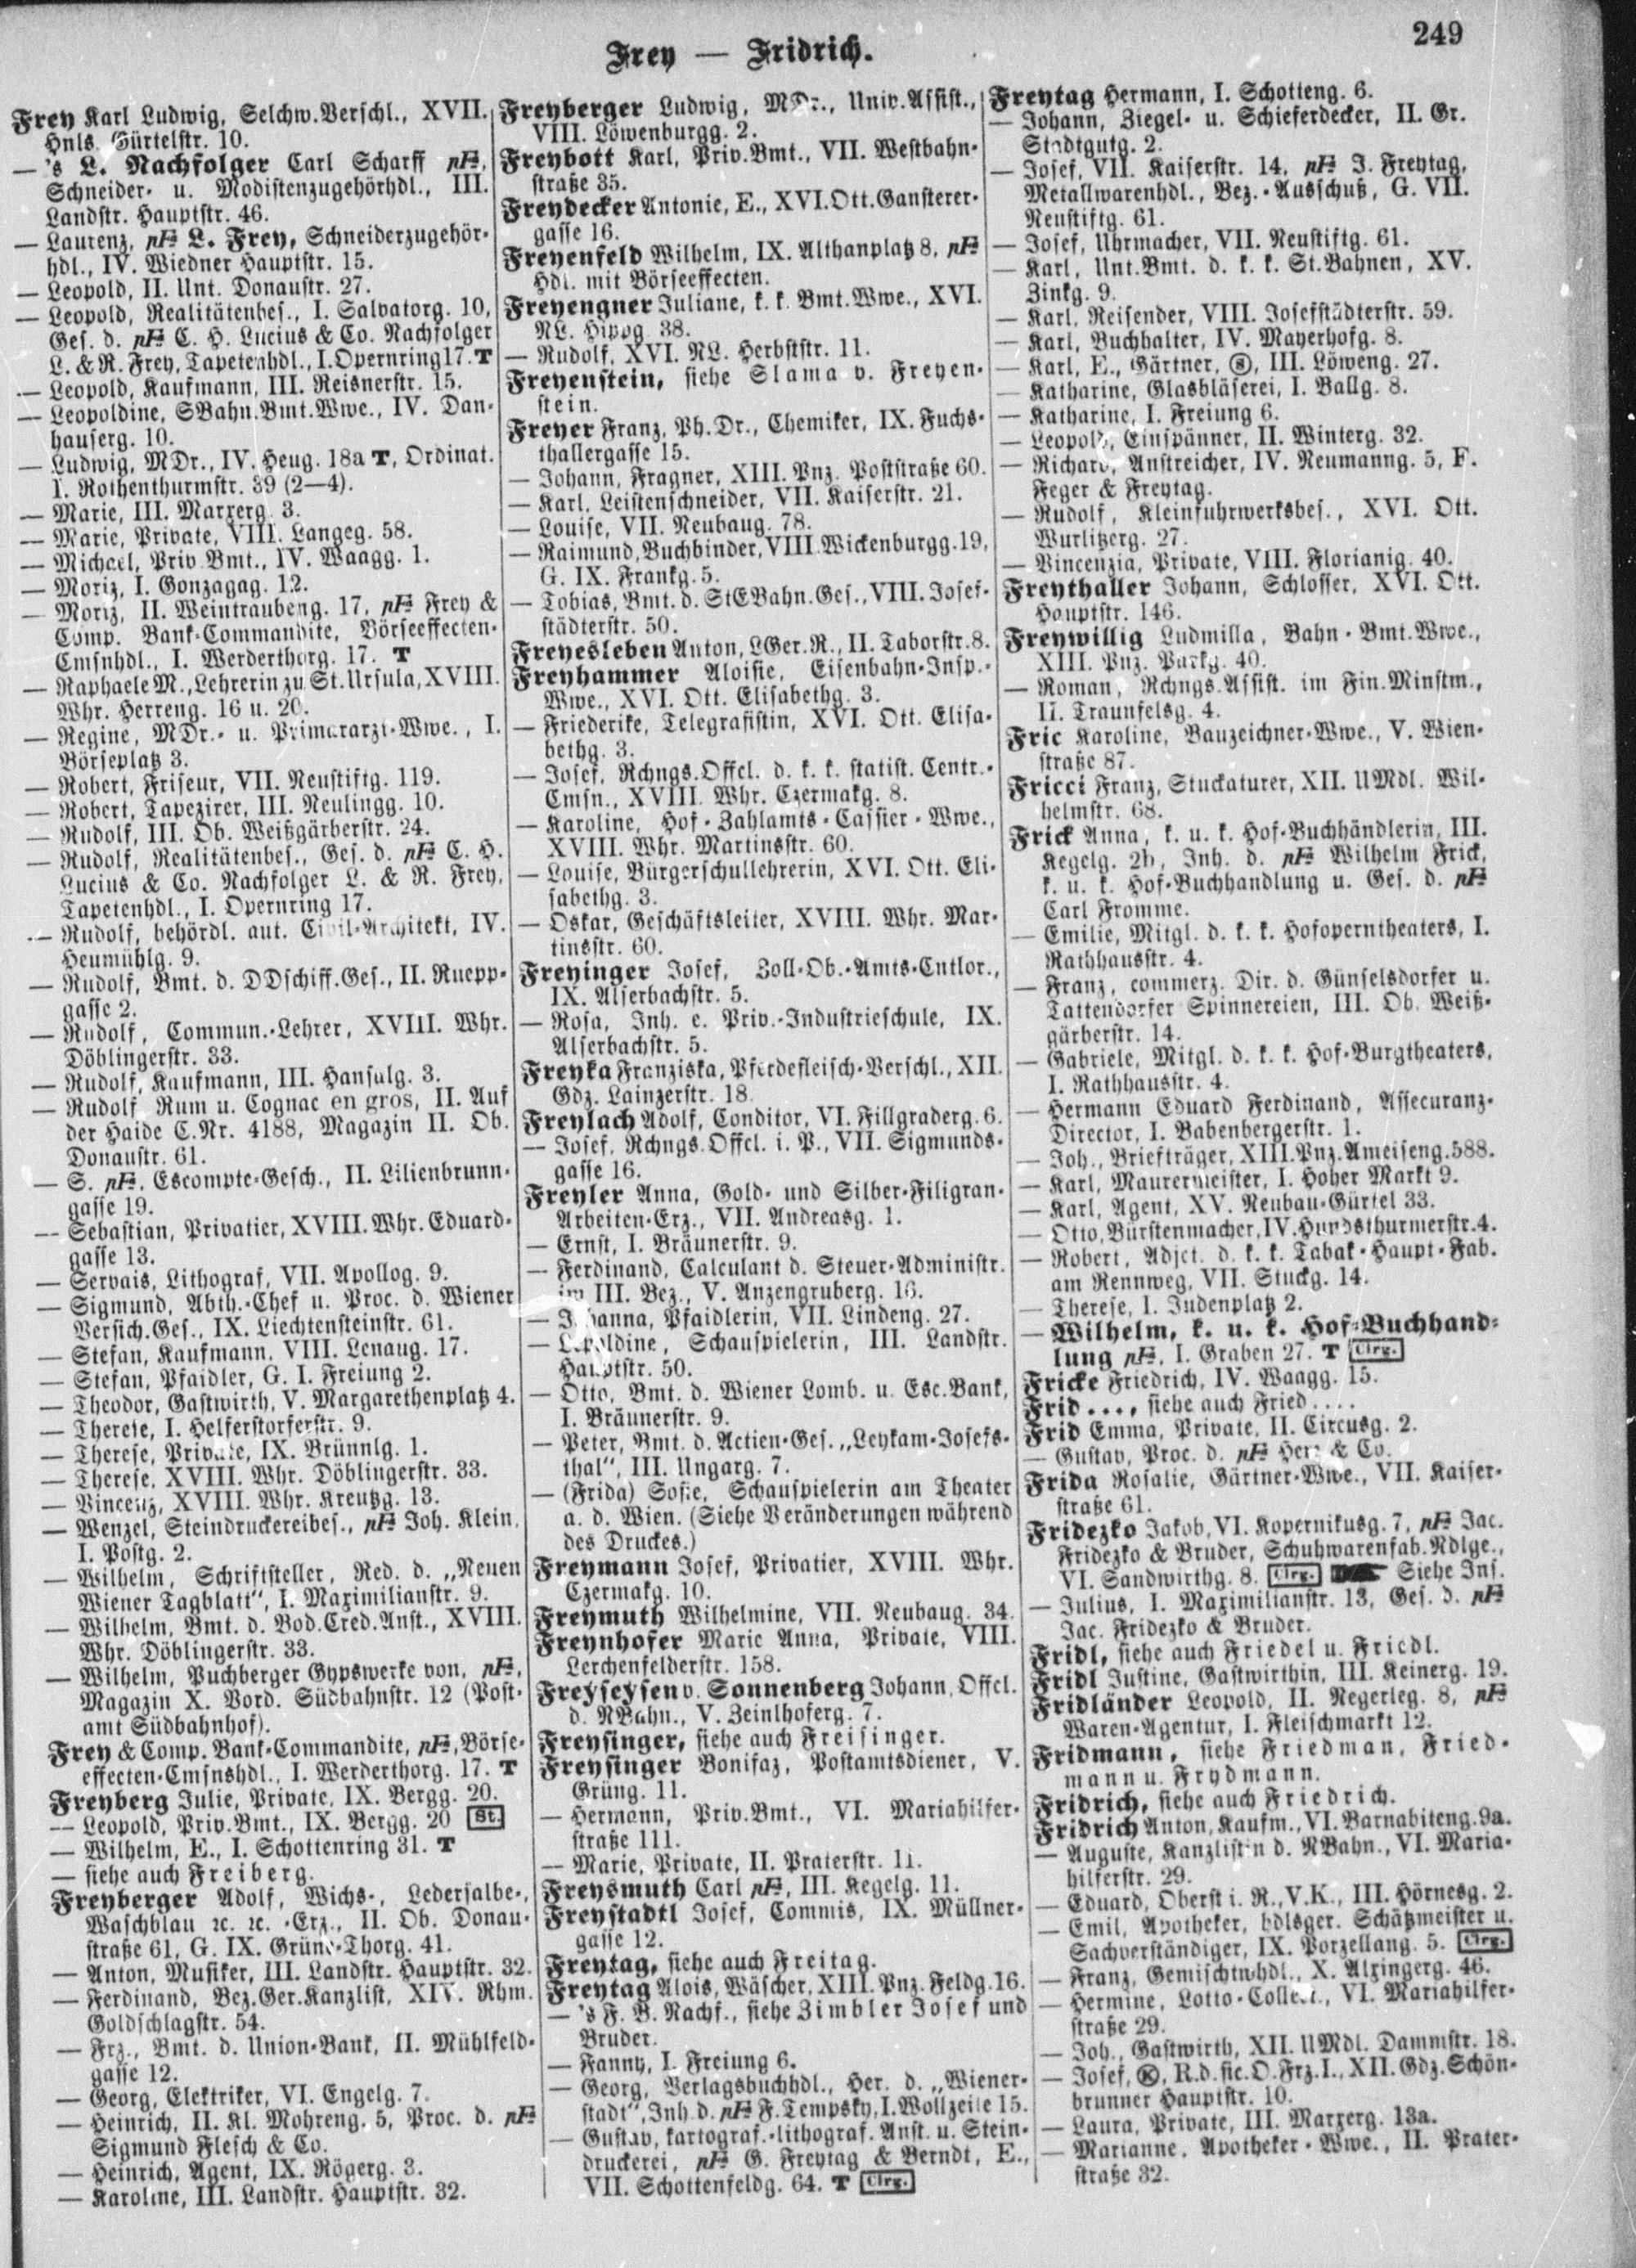 249
Frey — Fridrich.
Frey Karl Ludwig, Selchw.Verschl., XVII.
Hnls. Gürtelstr. 10.
— 's L. Nachfolger Carl Scharff pFa,
Schneider- u. Modistenzugehörhdl., III.
Landstr. Hauptstr. 46.
— Laurenz, pFa L. Frey, Schneiderzugehör-
hdl., IV. Wiedner Hauptstr. 15.
— Leopold, II. Unt. Donaustr. 27.
— Leopold, Realitätenbes., I. Salvatorg. 10,
Ges. d. pFa C. H. Lucius & Co. Nachfolger
L. & R. Frey, Tapetenhdl., I. Opernring 17. T
— Leopold, Kaufmann, III. Reisnerstr. 15.
— Leopoldine, SBahn.Bmt.Wwe., IV. Dan-
hauserg. 10.
— Ludwig, MDr., IV. Heug. 18a T, Ordinat.
I. Rothenthurmstr. 39 (2—4).
— Marie, III. Marxerg. 3.
— Marie, Private, VIII. Langeg. 58.
— Michael, Priv.Bmt., IV. Waagg. 1.
— Moriz, I. Gonzagag. 12.
— Moriz, II. Weintraubeng. 17, pFa Frey &
Comp. Bank-Commandite, Börseeffecten-
Cmsnhdl., I. Werderthorg. 17. T
— Raphaele M., Lehrerin zu St. Ursula, XVIII.
Whr. Herreng. 16 u. 20.
— Regine, MDr.- u. Primararzt-Wwe., I.
Börseplatz 3.
— Robert, Friseur, VII. Neustiftg. 119.
— Robert, Tapezirer, III. Neulingg. 10.
— Rudolf, III. Ob. Weißgärberstr. 24.
— Rudolf, Realitätenbes., Ges. d. pFa C. H.
Lucius & Co. Nachfolger L. & R. Frey,
Tapetenhdl., I. Opernring 17.
— Rudolf, behördl. aut. Civil-Architekt, IV.
Heumühlg. 9.
— Rudolf, Bmt. d. DDschiff.Ges., II. Ruepp-
gasse 2.
— Rudolf, Commun.-Lehrer, XVIII. Whr.
Döblingerstr. 33.
— Rudolf, Kaufmann, III. Hansalg. 3.
— Rudolf Rum u. Cognac en gros, II. Auf
der Haide C.Nr. 4188, Magazin II. Ob.
Donaustr. 61.
— S. pFa. Escompte-Gesch., II. Lilienbrunn-
gasse 19.
— Sebastian, Privatier, XVIII. Whr. Eduard-
gasse 13.
— Servais, Lithograf, VII. Apollog. 9.
— Sigmund, Abth.-Chef u. Proc. d. Wiener
Versich.Ges., IX. Liechtensteinstr. 61.
— Stefan, Kaufmann, VIII. Lenaug. 17.
— Stefan, Pfaidler, G. I. Freiung 2.
— Theodor, Gastwirth, V. Margarethenplatz 4.
— Therese, I. Helferstorferstr. 9.
— Therese, Private, IX. Brünnlg. 1.
— Therese, XVIII. Whr. Döblingerstr. 33.
— Vincenz, XVIII. Whr. Kreutzg. 13.
— Wenzel, Steindruckereibes., pFa Joh. Klein,
I. Postg. 2.
— Wilhelm, Schriftsteller, Red. d. „Neuen
Wiener Tagblatt“, I. Maximilianstr. 9.
— Wilhelm, Bmt. d. Bod.Cred.Anst., XVIII.
Whr. Döblingerstr. 33.
— Wilhelm, Puchberger Gypswerke von, pFa,
Magazin X. Vord. Südbahnstr. 12 (Post-
amt Südbahnhof).
Frey & Comp. Bank-Commandite, pFa, Börse-
effecten-Cmsnshdl., I. Werderthorg. 17. T
Freyberg Julie, Private, IX. Bergg. 20.
— Leopold, Priv.Bmt., IX. Bergg. 20 St.
— Wilhelm, E., I. Schottenring 31. T
— siehe auch Freiberg.
Freyberger Adolf, Wichs-, Ledersalbe-,
Waschblau ꝛc. ꝛc. -Erz., II. Ob. Donau-
straße 61, G. IX. Gründ-Thorg. 41.
— Anton, Musiker, III. Landstr. Hauptstr. 32.
— Ferdinand, Bez.Ger.Kanzlist, XIV. Rhm.
Goldschlagstr. 54.
— Frz., Bmt. d. Union-Bank, II. Mühlfeld-
gasse 12.
— Georg, Elektriker, VI. Engelg. 7.
— Heinrich, II. Kl. Mohreng. 5, Proc. d. pFa
Sigmund Flesch & Co.
— Heinrich, Agent, IX. Rögerg. 3.
— Karoline, III. Landstr. Hauptstr. 32.
Freyberger Ludwig, MDr., Univ.Assist.,
VIII. Löwenburgg. 2.
Freybott Karl, Priv.Bmt., VII. Westbahn-
straße 35.
Freydecker Antonie, E., XVI. Ott. Gansterer-
gasse 16.
Freyenfeld Wilhelm, IX. Althanplatz 8, pFa
Hdl. mit Börseeffecten.
Freyengner Juliane, k. k. Bmt.Wwe., XVI.
NL. Hippg. 38.
— Rudolf, XVI. NL. Herbststr. 11.
Freyenstein, siehe Slama v. Freyen-
stein.
Freyer Franz, Ph.Dr., Chemiker, IX. Fuchs-
thallergasse 15.
— Johann, Fragner, XIII. Pnz. Poststraße 60.
— Karl, Leistenschneider, VII. Kaiserstr. 21.
— Louise, VII. Neubaug. 78.
— Raimund, Buchbinder, VIII. Wickenburgg. 19,
G. IX. Frankg. 5.
— Tobias, Bmt. d. StEBahn.Ges., VIII. Josef-
städterstr. 50.
Freyesleben Anton, LGer.R., II. Taborstr. 8.
Freyhammer Aloisie, Eisenbahn-Insp.-
Wwe., XVI. Ott. Elisabethg. 3.
— Friederike, Telegrafistin, XVI. Ott. Elisa-
bethg. 3.
— Josef, Rchngs.Offcl. d. k. k. statist. Centr.-
Cmsn., XVIII. Whr. Czermakg. 8.
— Karoline, Hof-Zahlamts-Cassier-Wwe.,
XVIII. Whr. Martinsstr. 60.
— Louise, Bürgerschullehrerin, XVI. Ott. Eli-
sabethg. 3.
— Oskar, Geschäftsleiter, XVIII. Whr. Mar-
tinsstr. 60.
Freyinger Josef, Zoll-Ob.-Amts-Cntlor.,
IX. Alserbachstr. 5.
— Rosa, Inh. e. Priv.-Industrieschule, IX.
Alserbachstr. 5.
Freyka Franziska, Pferdefleisch-Verschl., XII.
Gdz. Lainzerstr. 18.
Freylach Adolf, Conditor, VI. Fillgraderg. 6.
— Josef, Rchngs.Offcl. i. P., VII. Sigmunds-
gasse 16.
Freyler Anna, Gold- und Silber-Filigran-
Arbeiten-Erz., VII. Andreasg. 1.
— Ernst, I. Bräunerstr. 9.
— Ferdinand, Calculant d. Steuer-Administr.
im III. Bez., V. Anzengruberg. 16.
— Johanna, Pfaidlerin, VII. Lindeng. 27.
— Leopoldine, Schauspielerin, III. Landstr.
Hauptstr. 50.
— Otto, Bmt. d. Wiener Lomb. u. Esc.Bank,
I. Bräunerstr. 9.
— Peter, Bmt. d. Actien-Ges. „Leykam-Josefs-
thal“, III. Ungarg. 7.
— (Frida) Sofie, Schauspielerin am Theater
a. d. Wien. (Siehe Veränderungen während
des Druckes.)
Freymann Josef, Privatier, XVIII. Whr.
Czermakg. 10.
Freymuth Wilhelmine, VII. Neubaug. 34.
Freynhofer Marie Anna, Private, VIII.
Lerchenfelderstr. 158.
Freyseysen v. Sonnenberg Johann, Offcl.
d. NBahn., V. Zeinlhoferg. 7.
Freysinger, siehe auch Freisinger.
Freysinger Bonifaz, Postamtsdiener, V.
Grüng. 11.
— Hermann, Priv.Bmt., VI. Mariahilfer-
straße 111.
— Marie, Private, II. Praterstr. 11.
Freysmuth Carl pFa, III. Kegelg. 11.
Freystadtl Josef, Commis, IX. Müllner-
gasse 12.
Freytag, siehe auch Freitag.
Freytag Alois, Wäscher, XIII. Pnz. Feldg. 16.
— 's F. B. Nachf., siehe Zimbler Josef und
Bruder.
— Fanny, I. Freiung 6.
— Georg, Verlagsbuchhdl., Her. d. „Wiener-
stadt“, Inh. d. pFa F. Tempsky, I. Wollzeile 15.
— Gustav, kartograf.-lithograf. Anst. u. Stein-
druckerei, pFa G. Freytag & Berndt, E.,
VII. Schottenfeldg. 64. T Clrg.
Freytag Hermann, I. Schotteng. 6.
— Johann, Ziegel- u. Schieferdecker, II. Gr.
Stadtgutg. 2.
— Josef, VII. Kaiserstr. 14, pFa J. Freytag,
Metallwarenhdl., Bez.-Ausschuß, G. VII.
Neustiftg. 61.
— Josef, Uhrmacher, VII. Neustiftg. 61.
— Karl, Unt.Bmt. d. k. k. St.Bahnen, XV.
Zinkg. 9.
— Karl, Reisender, VIII. Josefstädterstr. 59.
— Karl, Buchhalter, IV. Mayerhofg. 8.
— Karl, E., Gärtner, (8), III. Löweng. 27.
— Katharine, Glasbläserei, I. Ballg. 8.
— Katharine, I. Freiung 6.
— Leopold, Einspänner, II. Winterg. 32.
— Richard, Anstreicher, IV. Neumanng. 5, F.
Feger & Freytag.
— Rudolf, Kleinfuhrwerksbes., XVI. Ott.
Wurlitzerg. 27.
— Vincenzia, Private, VIII. Florianig. 40.
Freythaller Johann, Schlosser, XVI. Ott.
Hauptstr. 146.
Freywillig Ludmilla, Bahn-Bmt.Wwe.,
XIII. Pnz. Parkg. 40.
— Roman, Rchngs.Assist. im Fin.Minstm.,
II. Traunfelsg. 4.
Fric Karoline, Bauzeichner-Wwe., V. Wien-
straße 87.
Fricci Franz, Stuckaturer, XII. UMdl. Wil-
helmstr. 68.
Frick Anna, k. u. k. Hof-Buchhändlerin, III.
Kegelg. 2b, Inh. d. pFa Wilhelm Frick,
k. u. k. Hof-Buchhandlung u. Ges. d. pFa
Carl Fromme.
— Emilie, Mitgl. d. k. k. Hofoperntheaters, I.
Rathhausstr. 4.
— Franz, commerz. Dir. d. Günselsdorfer u.
Tattendorfer Spinnereien, III. Ob. Weiß-
gärberstr. 14.
— Gabriele, Mitgl. d. k. k. Hof-Burgtheaters,
I. Rathhausstr. 4.
— Hermann Eduard Ferdinand, Assecuranz-
Director, I. Babenbergerstr. 1.
— Joh., Briefträger, XIII. Pnz. Ameiseng. 588.
— Karl, Maurermeister, I. Hoher Markt 9.
— Karl, Agent, XV. Neubau-Gürtel 33.
— Otto, Bürstenmacher, IV. Hundsthurmerstr. 4.
— Robert, Adjct. d. k. k. Tabak-Haupt-Fab.
am Rennweg, VII. Stuckg. 14.
— Therese, I. Judenplatz 2.
— Wilhelm, k. u. k. Hof-Buchhand-
lung pFa, I. Graben 27. T Clrg.
Fricke Friedrich, IV. Waagg. 15.
Frid...., siehe auch Fried....
Frid Emma, Private, II. Circusg. 2.
— Gustav, Proc. d. pFa & Co.
Frida Rosalie, Gärtner-Wwe., VII. Kaiser-
straße 61.
Fridezko Jakob, VI. Kopernikusg. 7, pFa Jac.
Fridezko & Bruder, Schuhwarenfab.Ndlge.,
VI. Sandwirthg. 8. Clrg. Siehe Ins.
— Julius, I. Maximilianstr. 13, Ges. d. pFa
Jac. Fridezko & Bruder.
Fridl, siehe auch Friedel u. Friedl.
Fridl Justine, Gastwirthin, III. Keinerg. 19.
Fridländer Leopold, II. Negerleg. 8, pFa
Waren-Agentur, I. Fleischmarkt 12.
Fridmann, siehe Friedman, Fried-
mann u. Frydmann.
Fridrich, siehe auch Friedrich.
Fridrich Anton, Kaufm., VI. Barnabiteng. 9a.
— Auguste, Kanzlistin d. NBahn., VI. Maria-
hilferstr. 29.
— Eduard, Oberst i. R., V.K., III. Hörnesg. 2.
— Emil, Apotheker, hdlsger. Schätzmeister u.
Sachverständiger, IX. Porzellang. 5. Clrg.
— Franz, Gemischtwhdl., X. Alxingerg. 46.
— Hermine, Lotto-Collect., VI. Mariahilfer-
straße 29.
— Joh., Gastwirth, XII. UMdl. Dammstr. 18.
— Josef, (K), R.d.sic.O.Frz.I., XII. Gdz. Schön-
brunner Hauptstr. 10.
— Laura, Private, III. Marxerg. 13a.
— Marianne, Apotheker-Wwe., II. Prater-
straße 32.